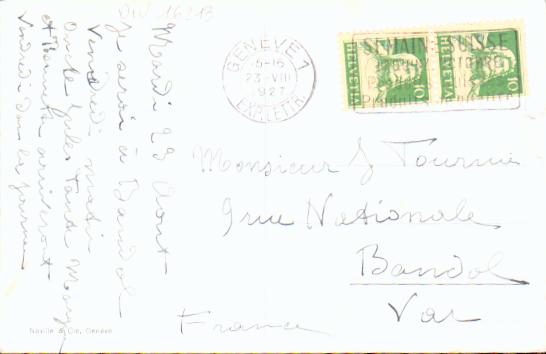 DIV 16213
Mardi 23 Aout
Je serai à Bandol
Vendredi matin
Oncle Jules Tante
et Benett arriveront
Vendredi dans la journée
Naville & Cie, Genève
GENÈVE 1
15-16
23·VIII
1927
EXP. LETTR.
SEMAINE SUISSE
HELVETIA
10
HELVETIA
10
Monsieur J Tournier
9 rue Nationale
Bandol
Var
France